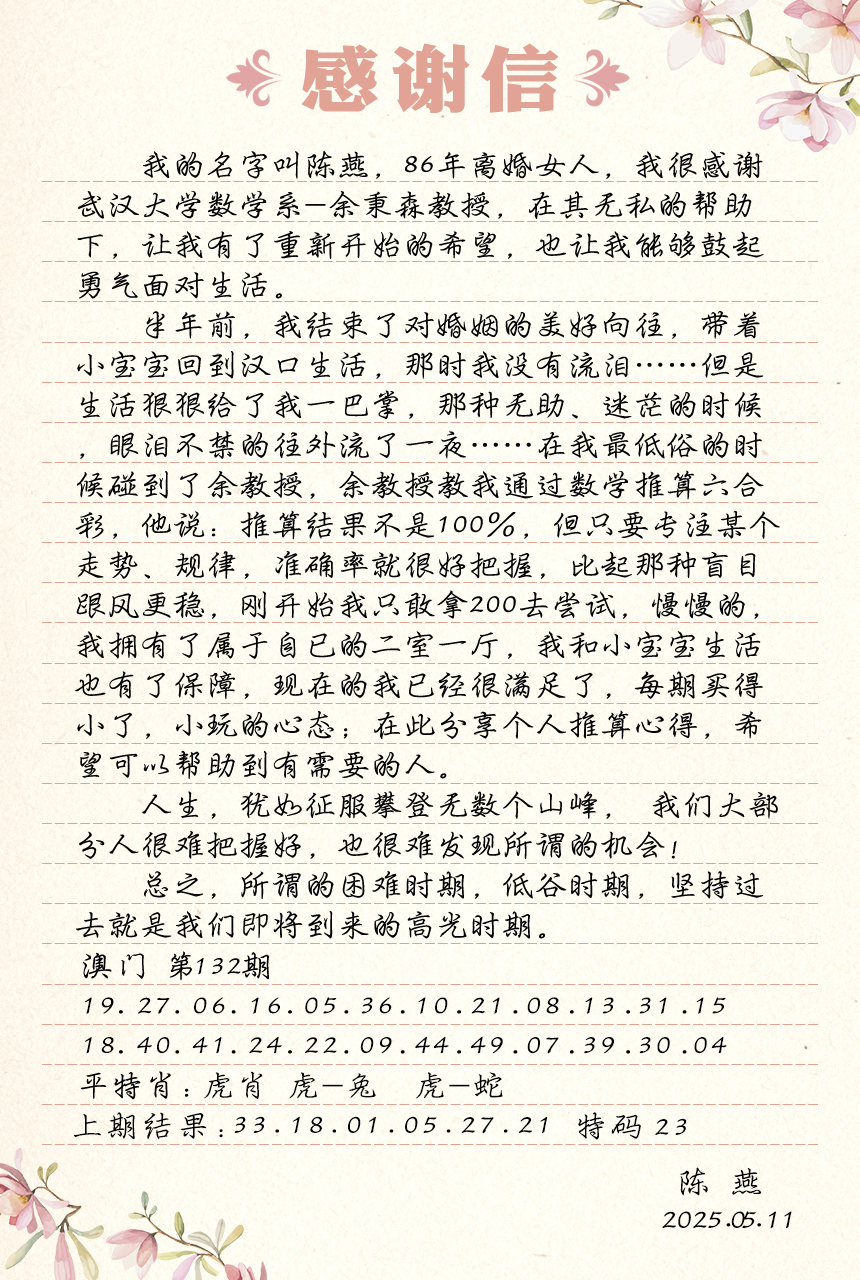 感谢信
我的名字叫陈燕，86年离婚女人，我很感谢
武汉大学数学系—余秉森教授，在其无私的帮助
下，让我有了重新开始的希望，也让我能够鼓起
勇气面对生活。
半年前，我结束了对婚姻的美好向往，带着
小宝宝回到汉口生活，那时我没有流泪……但是
生活狠狠给了我一巴掌，那种无助、迷茫的时候
，眼泪不禁的往外流了一夜……在我最低俗的时
候碰到了余教授，余教授教我通过数学推算六合
彩，他说：推算结果不是100%，但只要专注某个
走势、规律，准确率就很好把握，比起那种盲目
跟风更稳，刚开始我只敢拿200去尝试，慢慢的，
我拥有了属于自已的二室一厅，我和小宝宝生活
也有了保障，现在的我已经很满足了，每期买得
小了，小玩的心态；在此分享个人推算心得，希
望可以帮助到有需要的人。
人生，犹如征服攀登无数个山峰， 我们大部
分人很难把握好，也很难发现所谓的机会！
总之，所谓的困难时期，低谷时期，坚持过
去就是我们即将到来的高光时期。
澳门 第132期
19.27.06.16.05.36.10.21.08.13.31.15
18.40.41.24.22.09.44.49.07.39.30.04
平特肖：虎肖 虎—兔 虎—蛇
上期结果：33.18.01.05.27.21 特码 23
陈 燕
2025.05.11